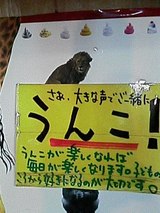 さあ、大きな声でご一緒に
うんこ!
うんこが楽しくなれば
毎日が楽しくなります。子どもの
ころから好きになるのが大切です。